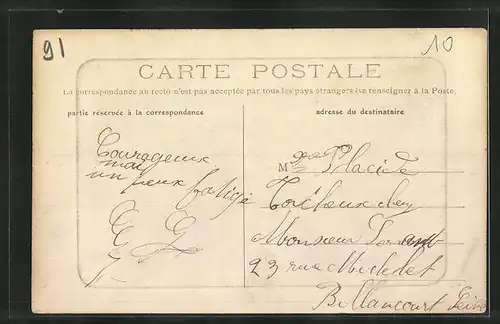 91
10
CARTE POSTALE
La correspondance au recto n'est pas acceptée par tous les pays étrangers (se renseigner à la Poste.
partie réservée à la correspondance
adresse du destinataire
Courageux
mais
un peux fatigé
M Placide
chez
Monsieur
23 rue Michelet
Billancourt Seine